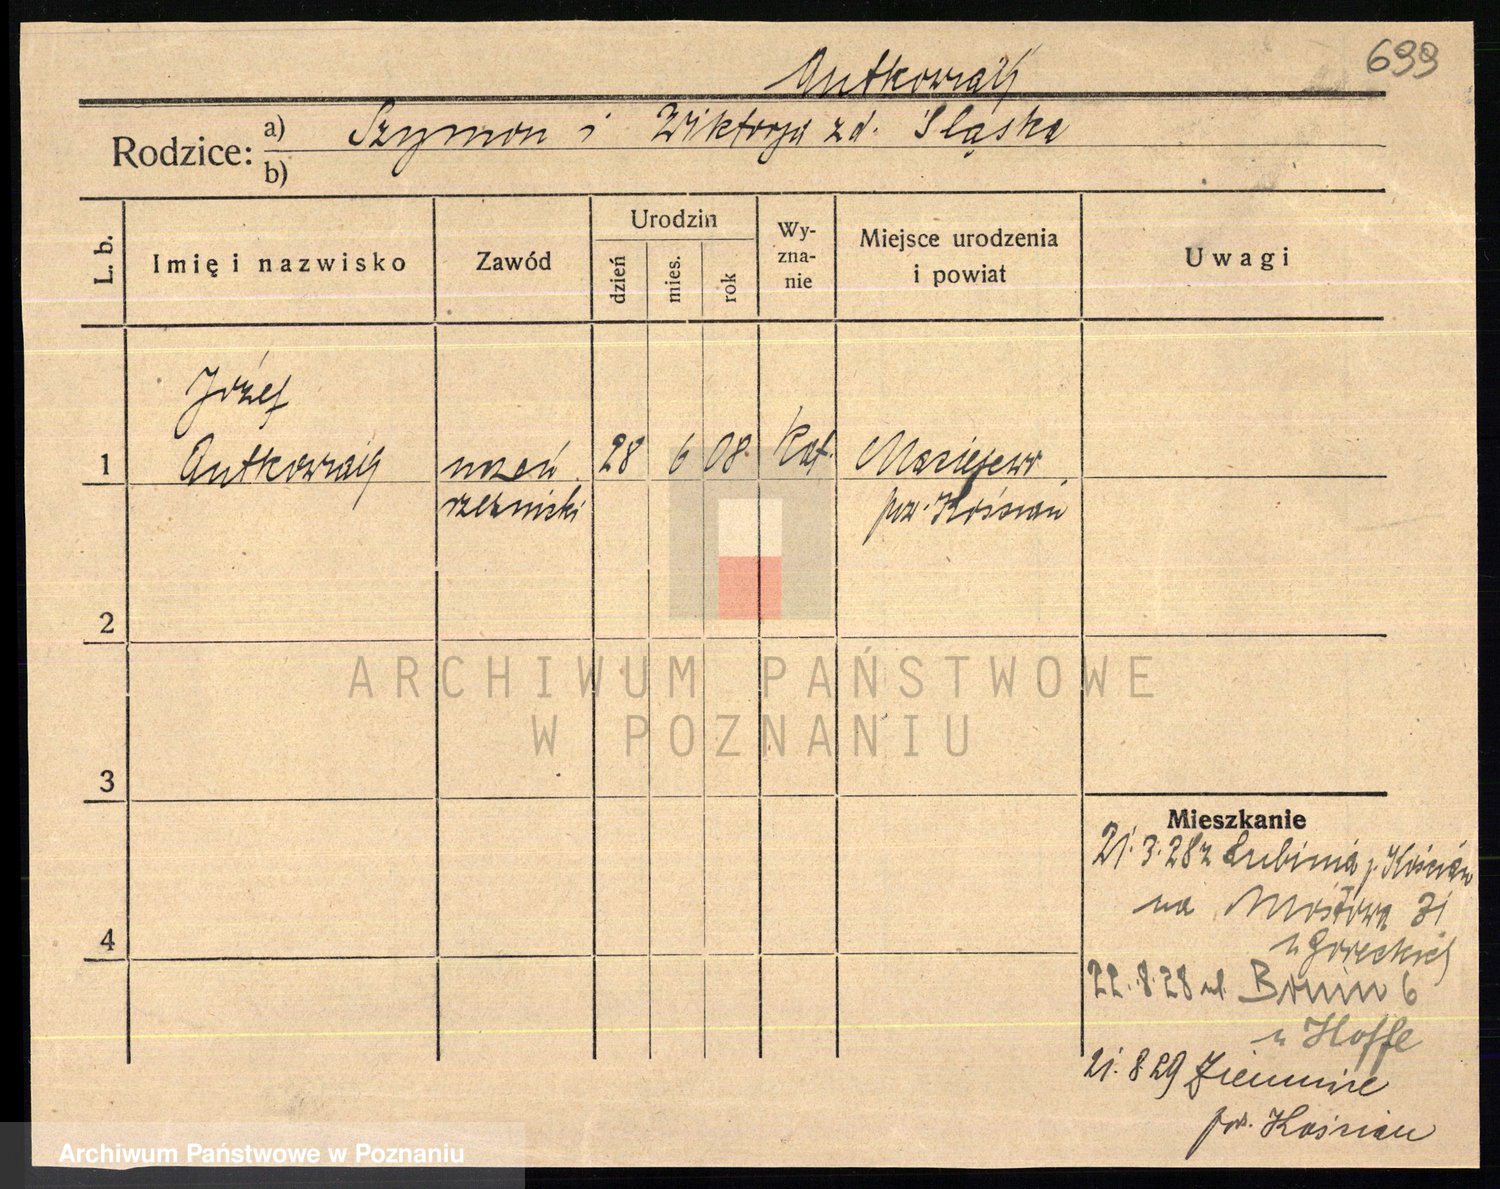 699
Antkowiak
Rodzice: a) Szymon i Wiktorja zd. Śląska
b)
L. b.
Imię i nazwisko
Zawód
Urodzin
dzień
mies.
rok
Wy-
zna-
nie
Miejsce urodzenia
i powiat
Uwagi
Józef
1 Antkowiak uczeń 28 6 08 Kat. Maciejewo
rzeźnicki pow. Kościan
2
3
4
Mieszkanie
21.3.28 z Lubinia p. Kościan
na Mostową 31
u Goreckich
22.8.28 ul. Bonin 6
u Hoffe
21.8.29
pow. Kościan
ARCHIWUM PAŃSTWOWE
W POZNANIU
Archiwum Państwowe w Poznaniu